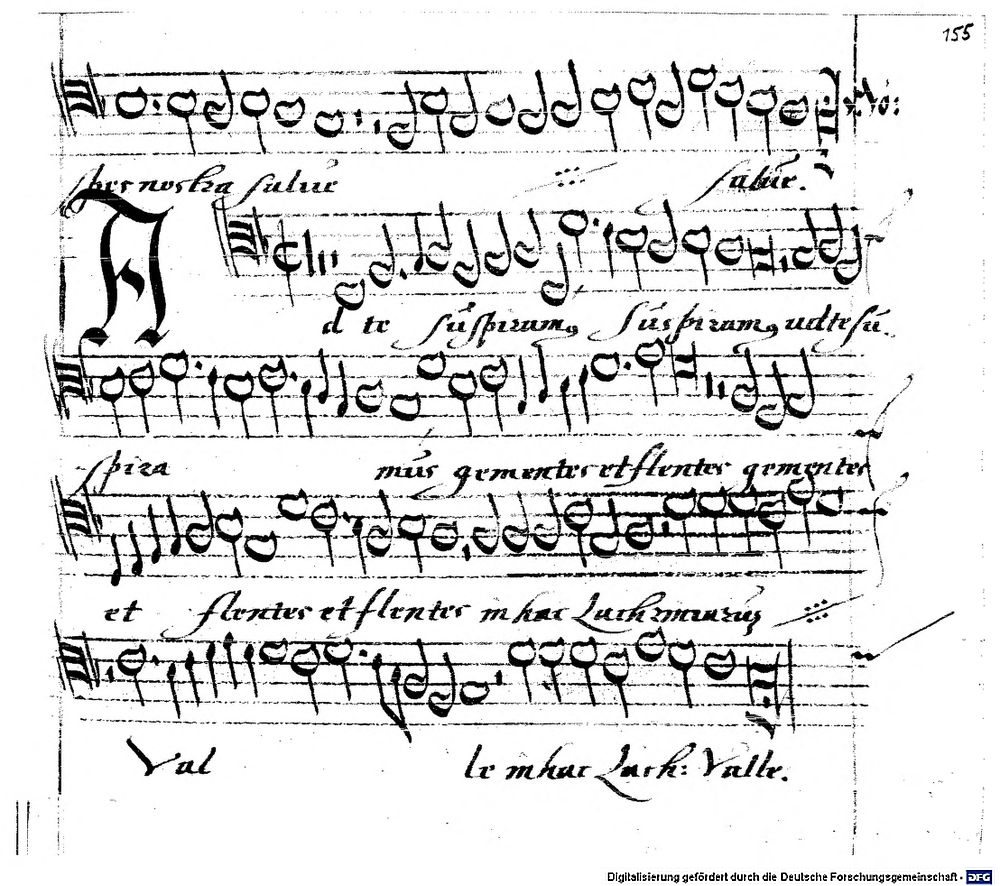 155
spes nostra salue salue.
Ad te suspiramꝰ suspiramꝰ ad te su.
spira mus gementes et flentes gementes
et flentes et flentes in hac Lachrimarum
Val le in hac Lach: Valle.
Digitalisierung gefördert durch die Deutsche Forschungsgemeinschaft - DFG